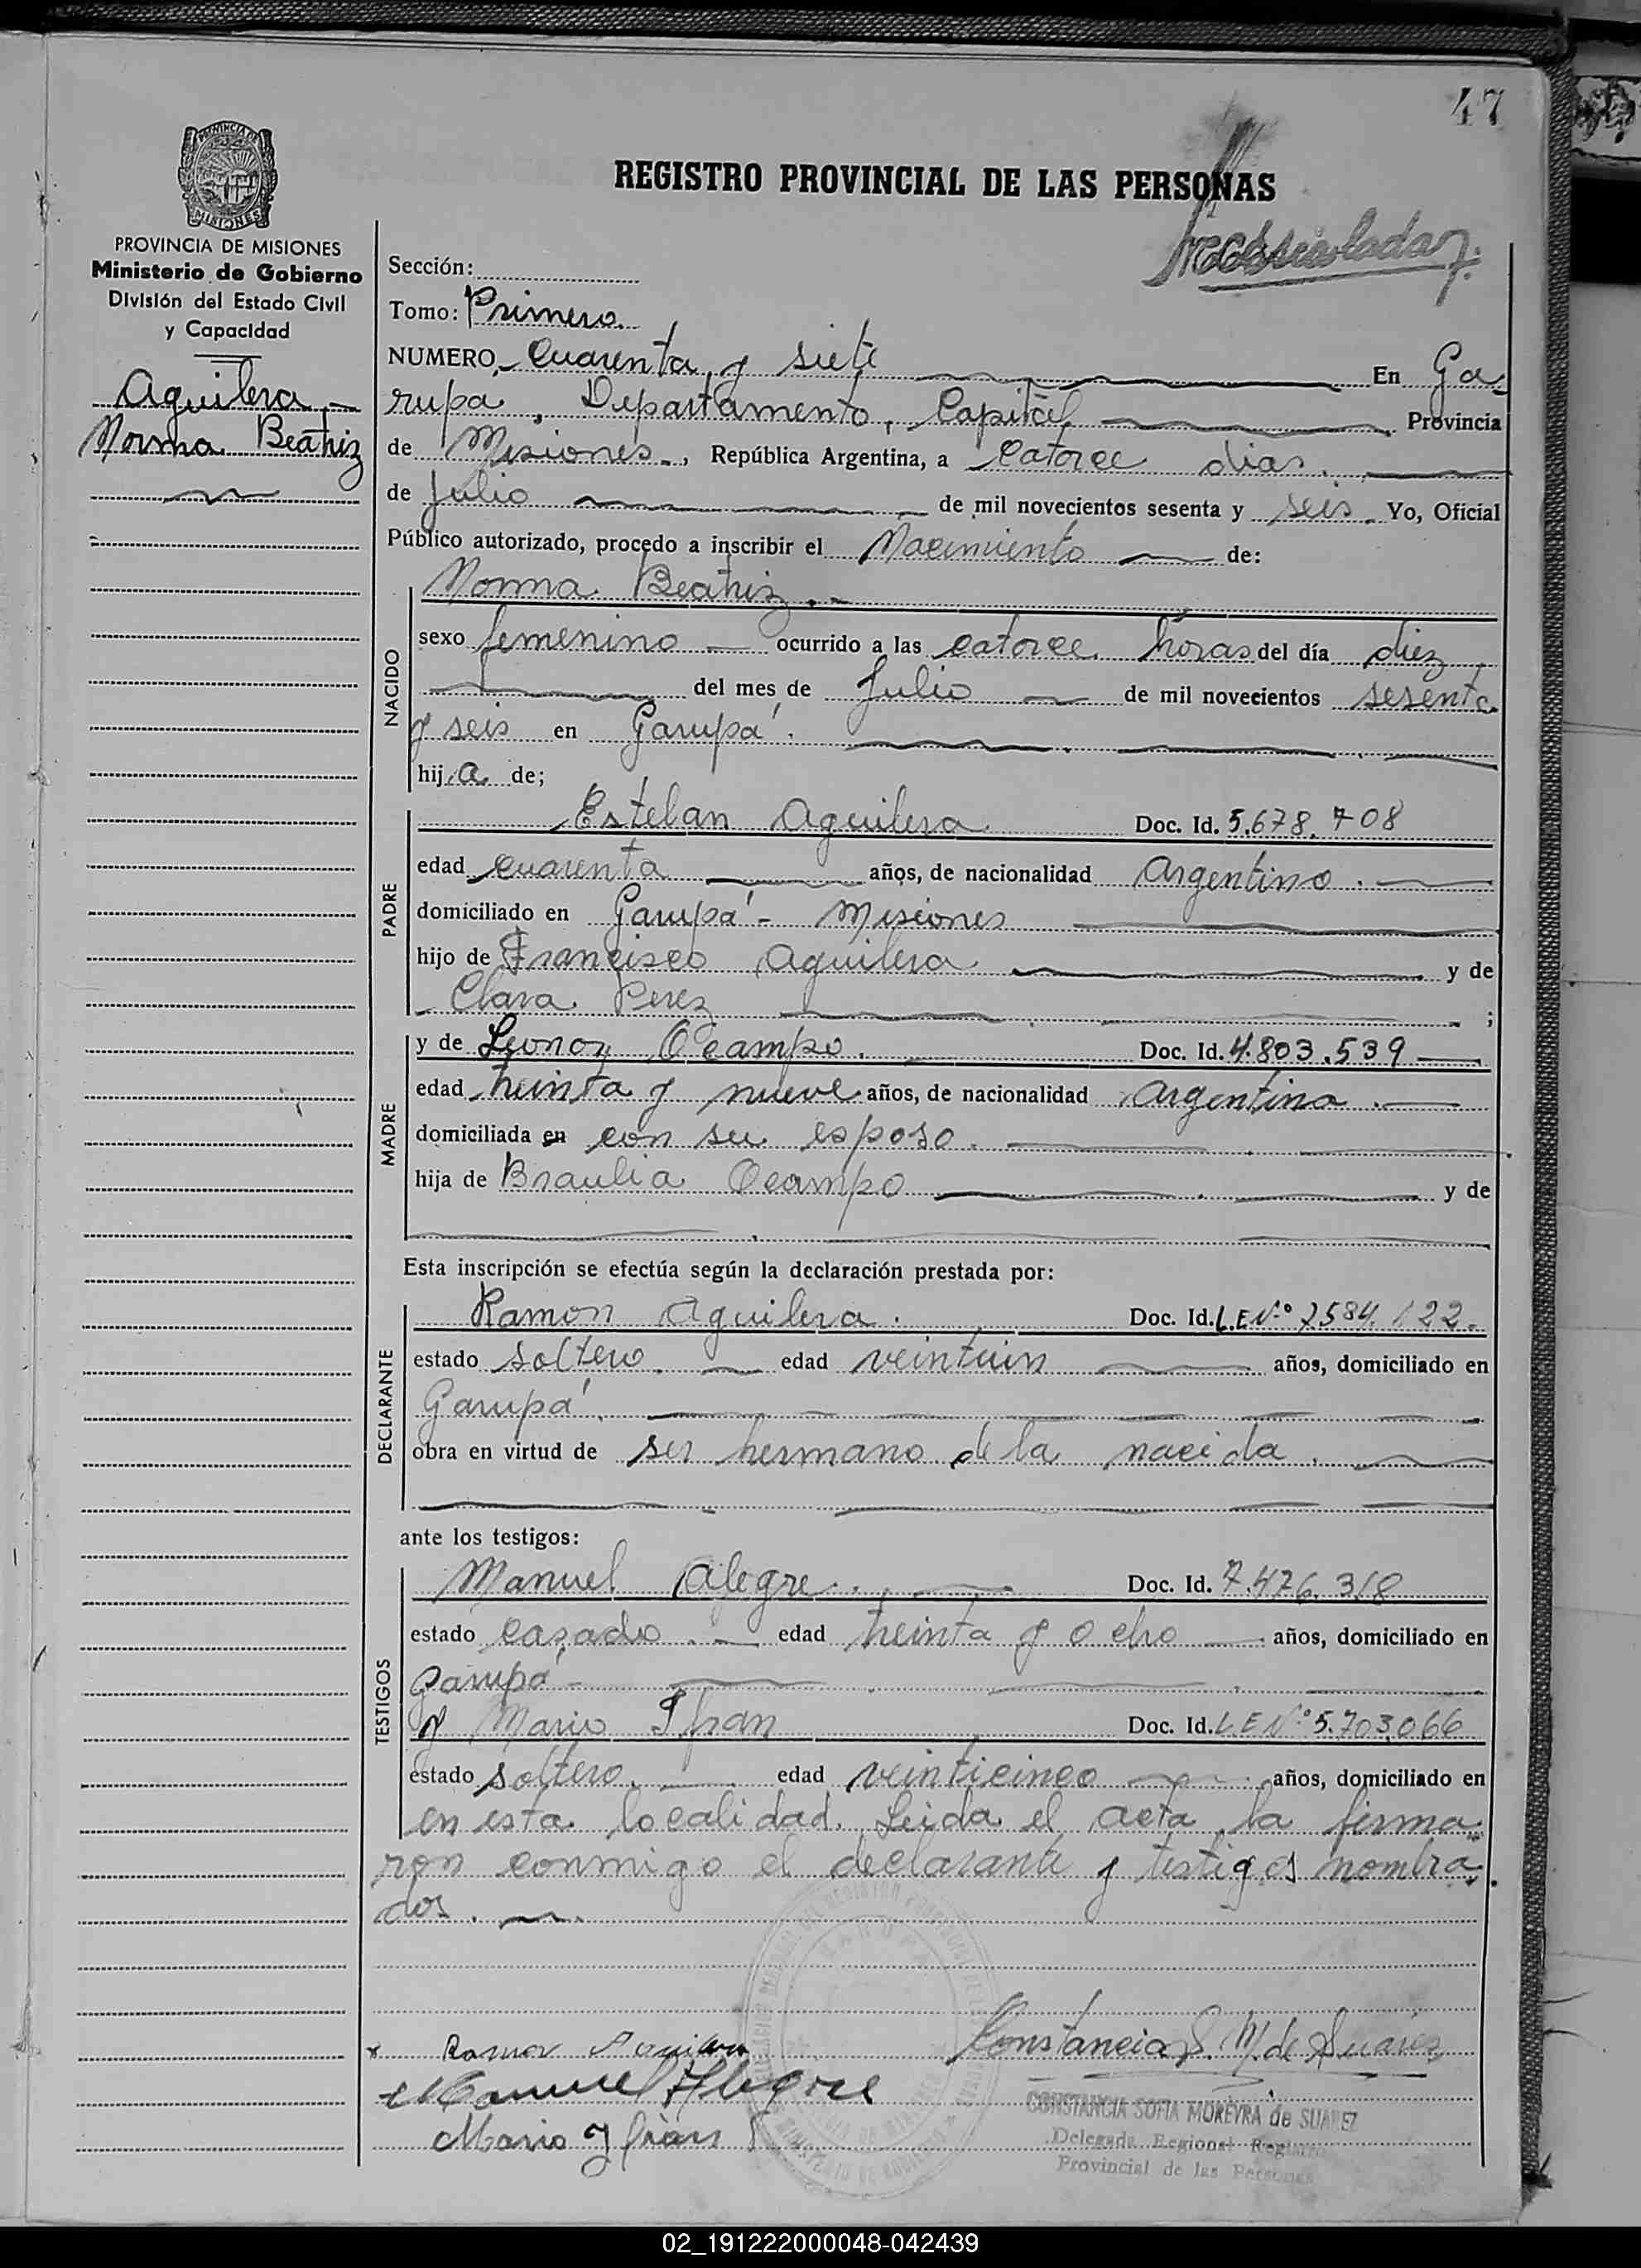 47
REGISTRO PROVINCIAL DE LAS PERSONAS
PROVINCIA DE
MISIONES
PROVINCIA DE MISIONES
Ministerio de Gobierno
División del Estado Civil
y Capacidad
Aguilera
Norma Beatriz
Sección:
Tomo: Primero
NUMERO, Cuarenta y siete En Ga-
rupa, Departamento, Capital Provincia
de Misiones, República Argentina, a Catorce dias
de Julio de mil novecientos sesenta y seis. Yo, Oficial
Público autorizado, procedo a inscribir el Nacimiento de:
Norma Beatriz.-
NACIDO
sexo femenino ocurrido a las catorce horas del día diez
del mes de Julio de mil novecientos sesenta
y seis en Garupá.
hija de;
PADRE
Esteban Aguilera Doc. Id. 5.678.708
edad cuarenta años, de nacionalidad Argentino.
domiciliado en Garupá - Misiones
hijo de Francisco Aguilera y de
Clara Perez ;
MADRE
y de Leonor Ocampo. Doc. Id. 4.803.539
edad treinta y nueve años, de nacionalidad Argentina.
domiciliada en con su esposo.
hija de Braulia Ocampo y de
Esta inscripción se efectúa según la declaración prestada por:
DECLARANTE
Ramon Aguilera. Doc. Id. L.E.Nº 7584.122.
estado soltero. edad veintiun años, domiciliado en
Garupá.
obra en virtud de ser hermano de la nacida.
ante los testigos:
TESTIGOS
Manuel Alegre. Doc. Id. 7.476.318
estado casado. edad treinta y ocho años, domiciliado en
Garupá
y Mario Ifran Doc. Id. L.E.Nº 5.703.066
estado soltero. edad veinticinco años, domiciliado en
en esta localidad. Leida el acta, la firma
ron conmigo el declarante y testigos nombra
dos.
Ramon Aguilera
Manuel Alegre
Mario Ifran
Constancia S. M. de Suarez
CONSTANCIA SOFIA MOREYRA de SUAREZ
Delegada Regional Registro
Provincial de las Personas
02_191222000048-042439